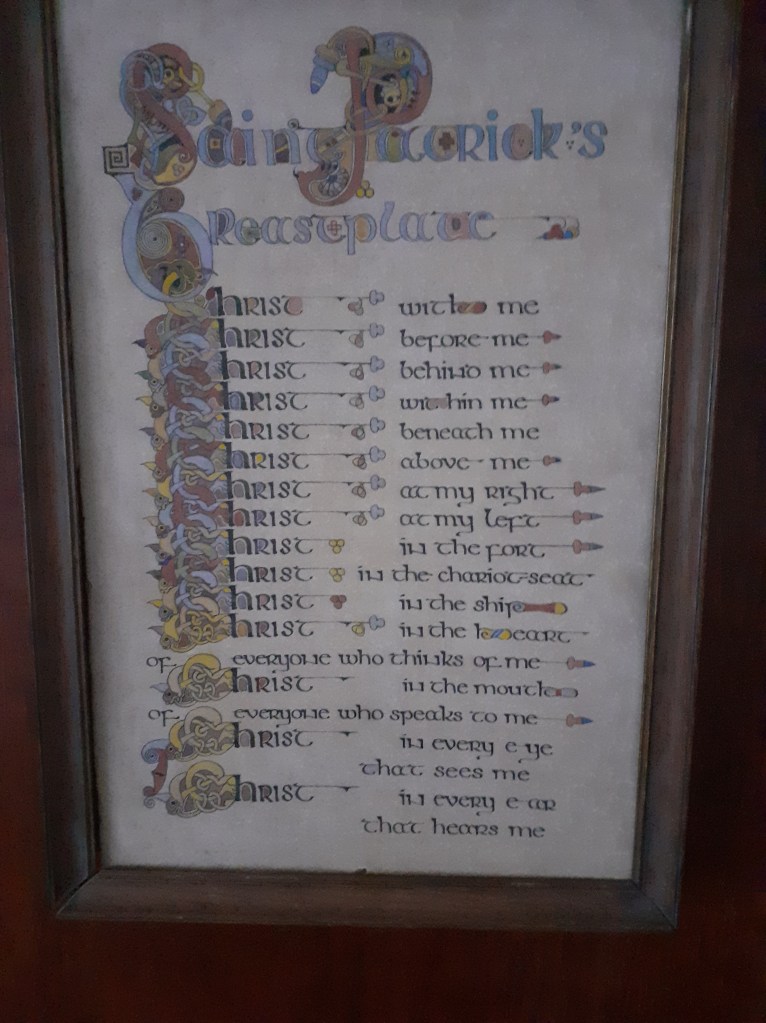 Saint Patrick's
Breastplate
Christ with me
Christ before me
Christ behind me
Christ within me
Christ beneath me
Christ above me
Christ at my right
Christ at my left
Christ in the fort
Christ in the chariot-seat
Christ in the ship
Christ in the heart
of everyone who thinks of me
Christ in the mouth
of everyone who speaks to me
Christ in every eye
that sees me
Christ in every ear
that hears me